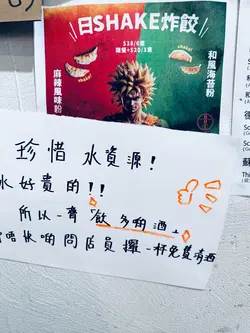 日SHAKE炸餃
$38/6隻
隨餐+$20/3隻
shake!
麻辣風味粉
和風海苔粉
珍惜 水資源!
水好貴的!!
所以一齊飲多啲酒
唔快啲問店員攞一杯免費清酒